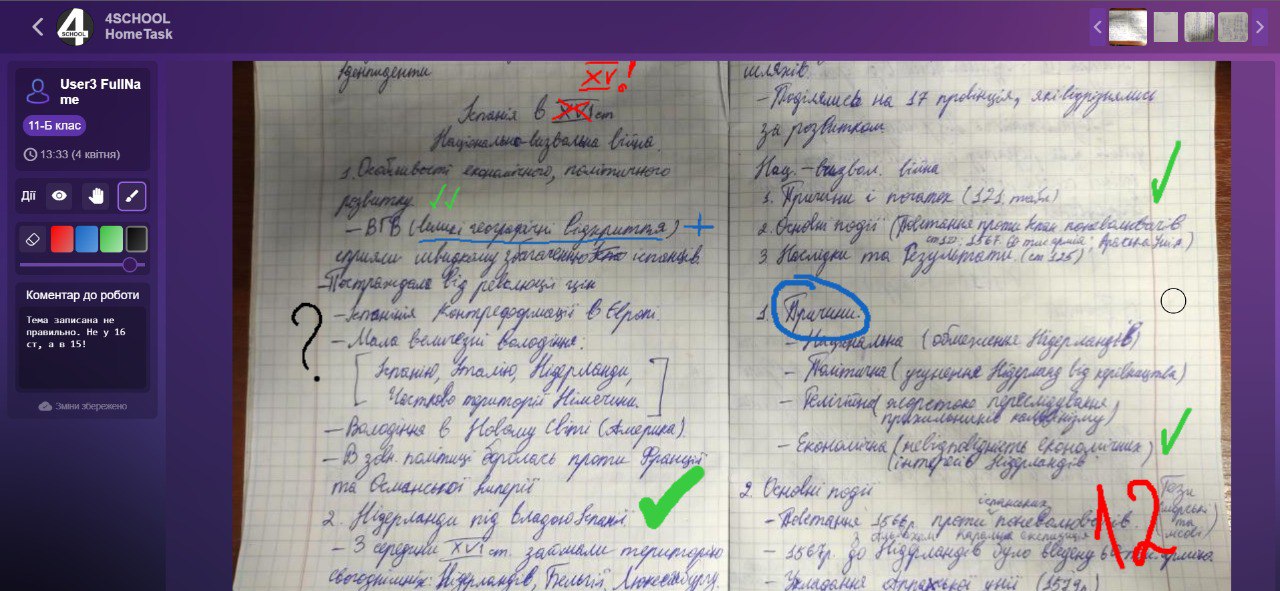 4SCHOOL
HomeTask
4
SCHOOL
User3 FullNa
me
11-Б клас
13:33 (4 квітня)
Дії
Коментар до роботи
Тема записана не
правильно. Не у 16
ст, а в 15!
Зміни збережено
XV!
Іспанія в XVI ст
Національно-визвольна війна.
1. Особливості економічного, політичного
розвитку.
- ВГВ (Великі географічні відкриття) +
сприяли швидкому збагаченню іспанців.
- Постраждала від революції цін
- Контрреформації в Європі.
- Мала величезні володіння:
[Іспанію, Італію, Нідерланди,
Частково території Німеччини.]
- Володіння в Новому Світі (Америка)
- В зовн. політиці боролась проти Франції
та Османської Імперії
2. Нідерланди під владою Іспанії
- З середини XVI ст. займали територію
сьогоднішніх: Нідерландів, Бельгії, Люксембургу.
?
шляхів.
- Поділялись на 17 провінцій, які відрізнялись
за розвитком
Нац.-визвол. війна
1. Причини і початок (121, табл)
2. Основні події (Повстання проти
3. Наслідки та Результати (ст 125)
1. Причини.
- Національна (обмеження Нідерландів)
- Політична (усунення Нідерланд від керівництва)
- Релігійна (жорстоке переслідування
прихильників кальвінізму)
- Економічна (невідповідність економічних)
(інтересів Нідерландів
2. Основні події
іспанських
- Повстання 1566р. проти поневолювачів.
- 1567р. до Нідерландів було введено
- Укладання Арраської унії (1579р.)
12